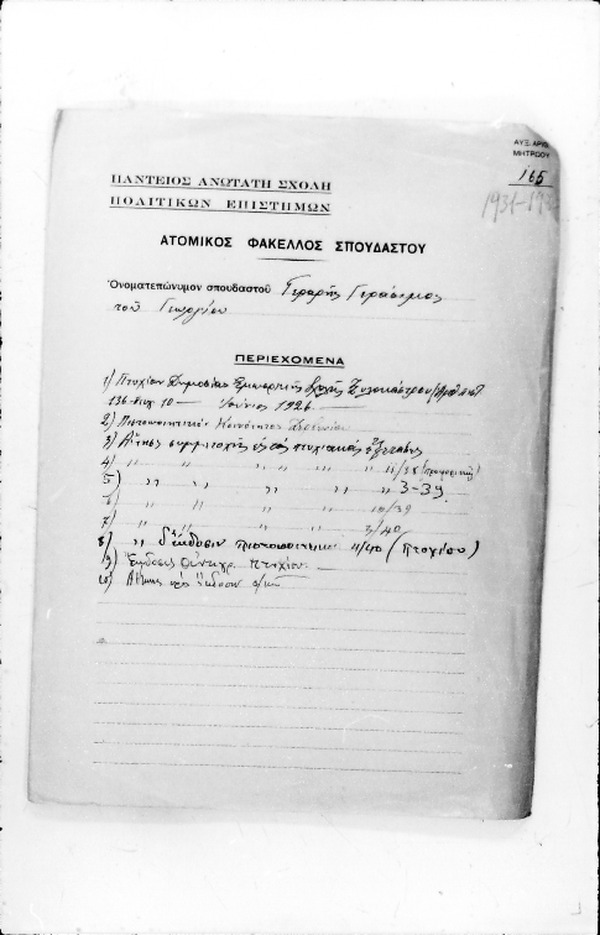 ΑΥΞ. ΑΡΙΘ.
ΜΗΤΡΩΟΥ
165
1931-193
ΠΑΝΤΕΙΟΣ ΑΝΩΤΑΤΗ ΣΧΟΛΗ
ΠΟΛΙΤΙΚΩΝ ΕΠΙΣΤΗΜΩΝ
ΑΤΟΜΙΚΟΣ ΦΑΚΕΛΛΟΣ ΣΠΟΥΔΑΣΤΟΥ
Ὀνοματεπώνυμον σπουδαστοῦ Γεραρῆς Γεράσιμος
τοῦ Γεωργίου
ΠΕΡΙΕΧΟΜΕΝΑ
1) Πτυχίον Δημοσίας Ἐμπορικῆς Σχολῆς Ξυλοκάστρου
136 10 — Ἰούνιος 1926 —
2) Πιστοποιητικόν Κοινότητος
3) Αἴτησις συμμετοχῆς εἰς τάς πτυχιακάς ἐξετάσεις
4) " " " " " " 11/38 (προφορικάς)
5) " " " " " 3-39
6) " " " 10/39
7) " " " 2/40
8) " δι' ἔκδοσιν πιστοποιητικοῦ 11/40 (Πτυχίου)
9) Ἔκδοσις ἀντιγρ. πτυχίου —
10) Αἴτησις πρός ἔκδοσιν